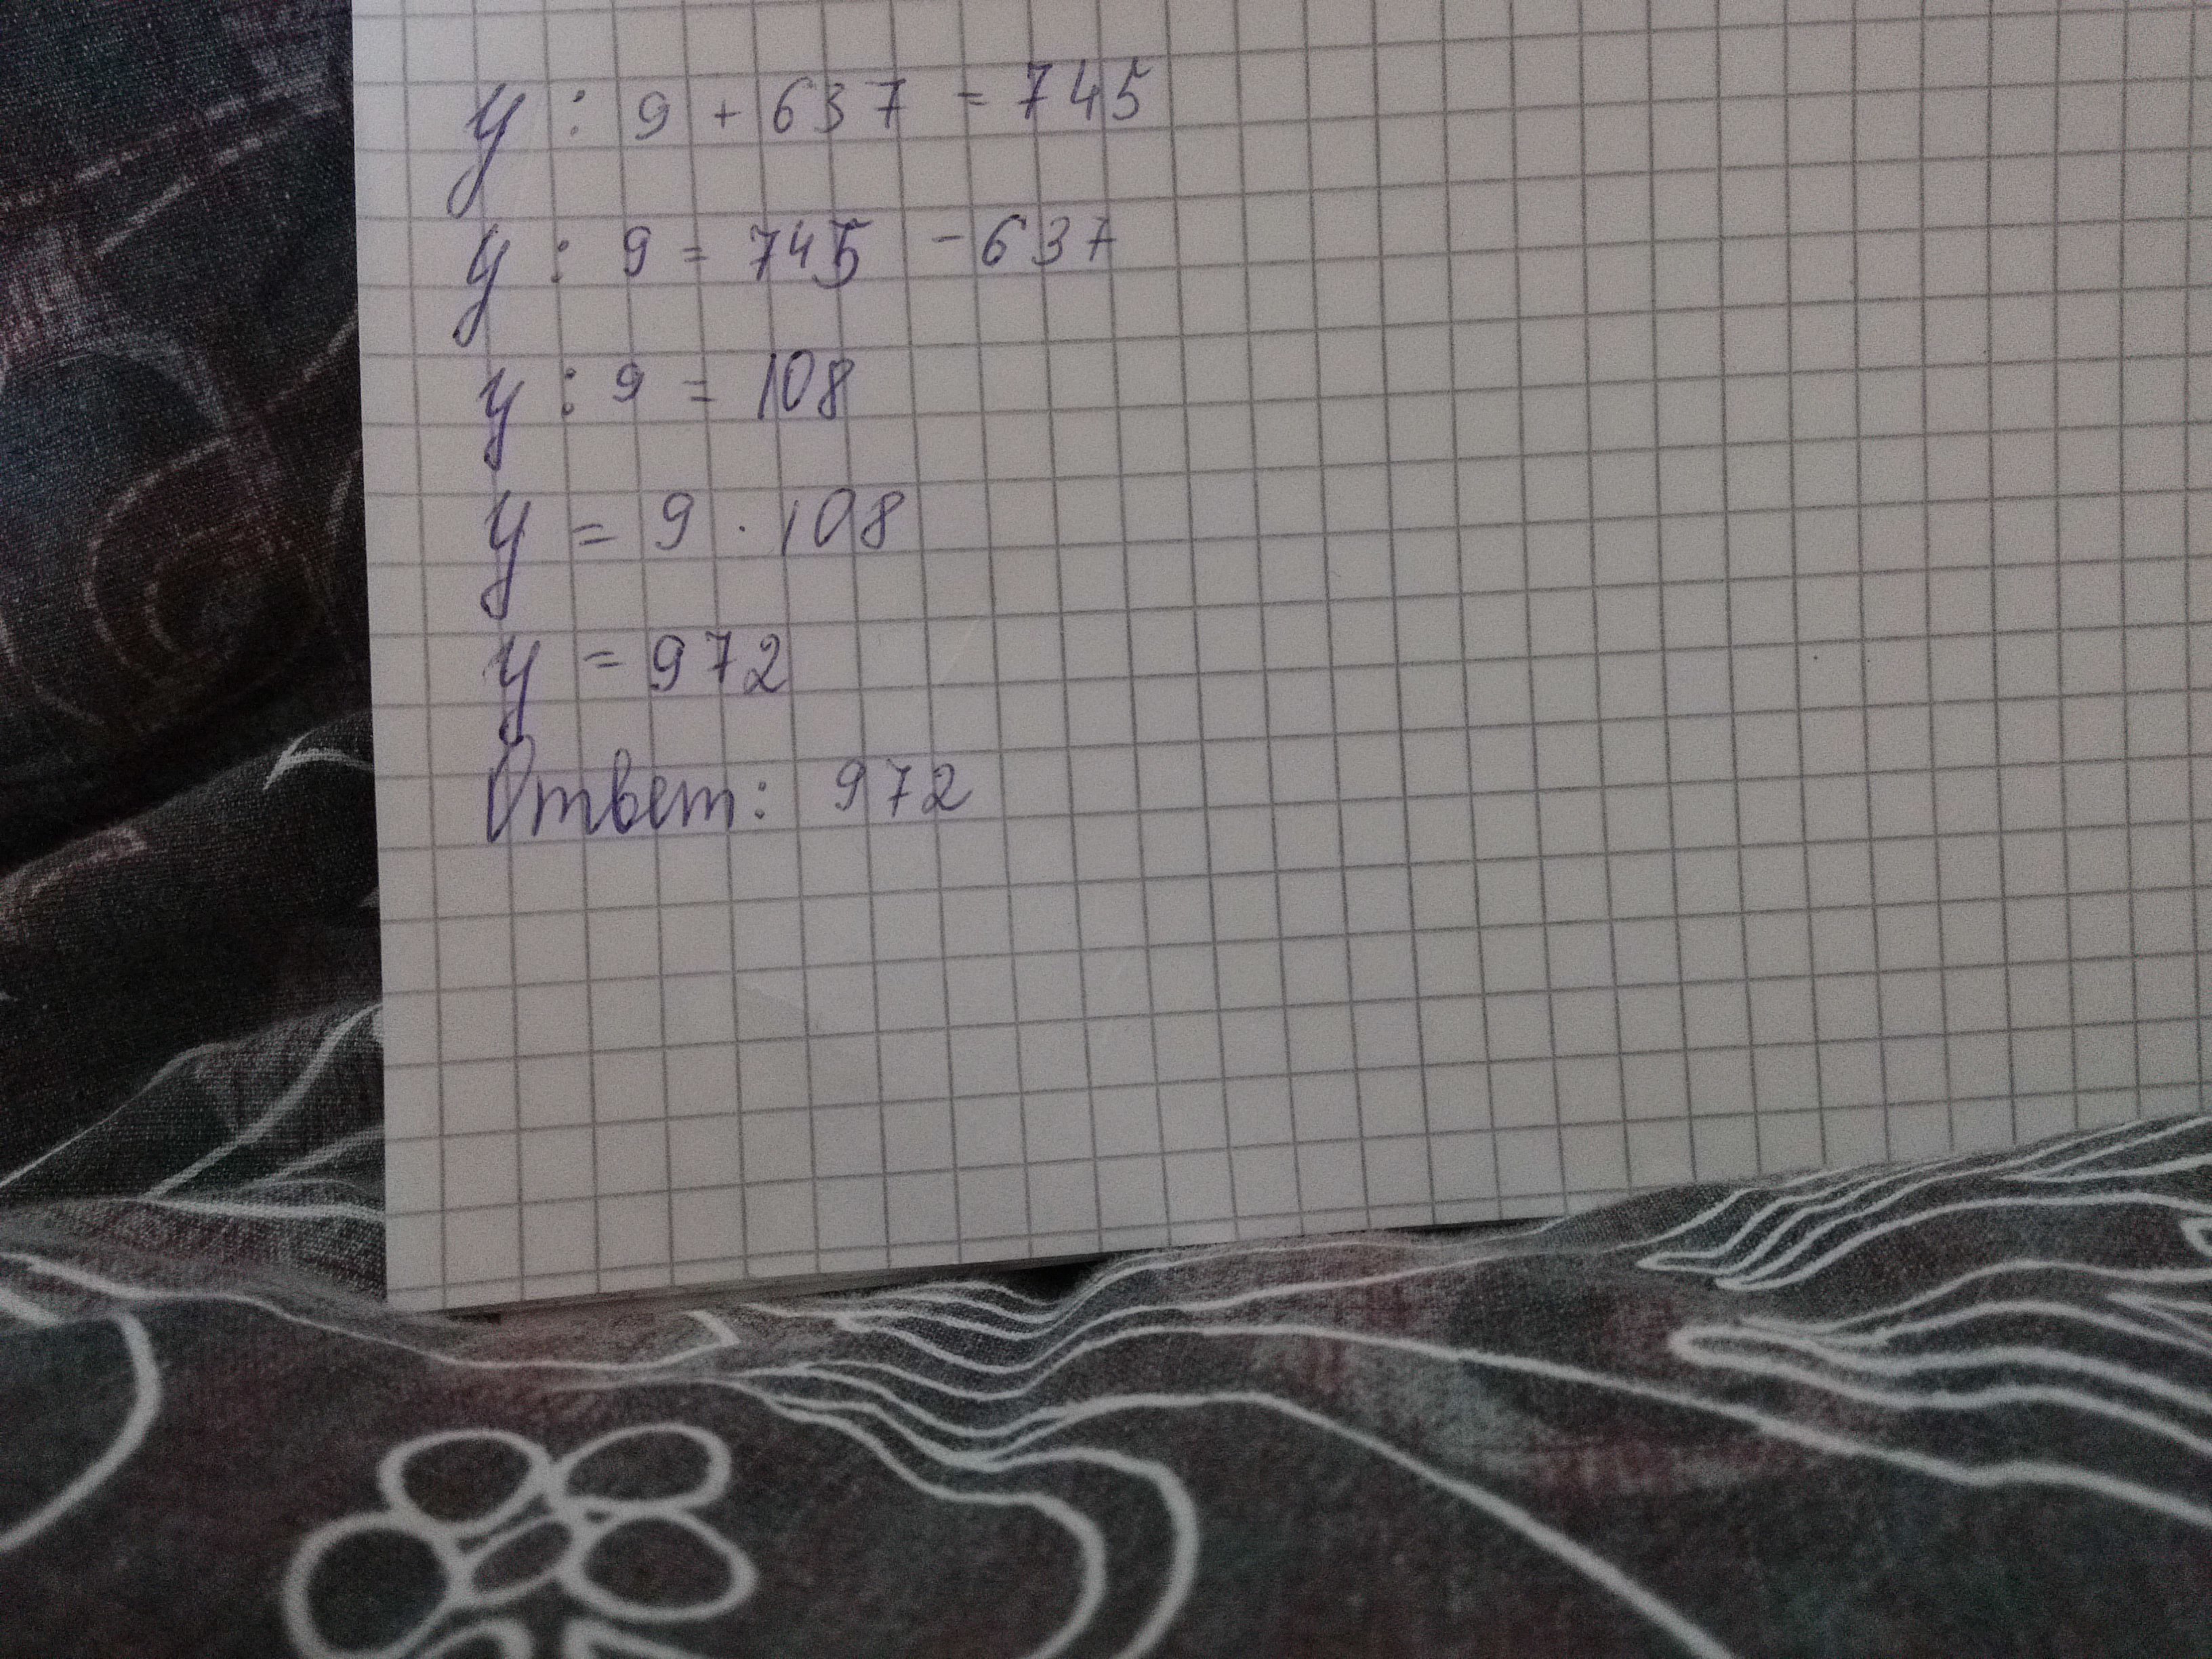 у : 9 + 637 = 745
у : 9 = 745 - 637
у : 9 = 108
у = 9 · 108
у = 972
Ответ: 972